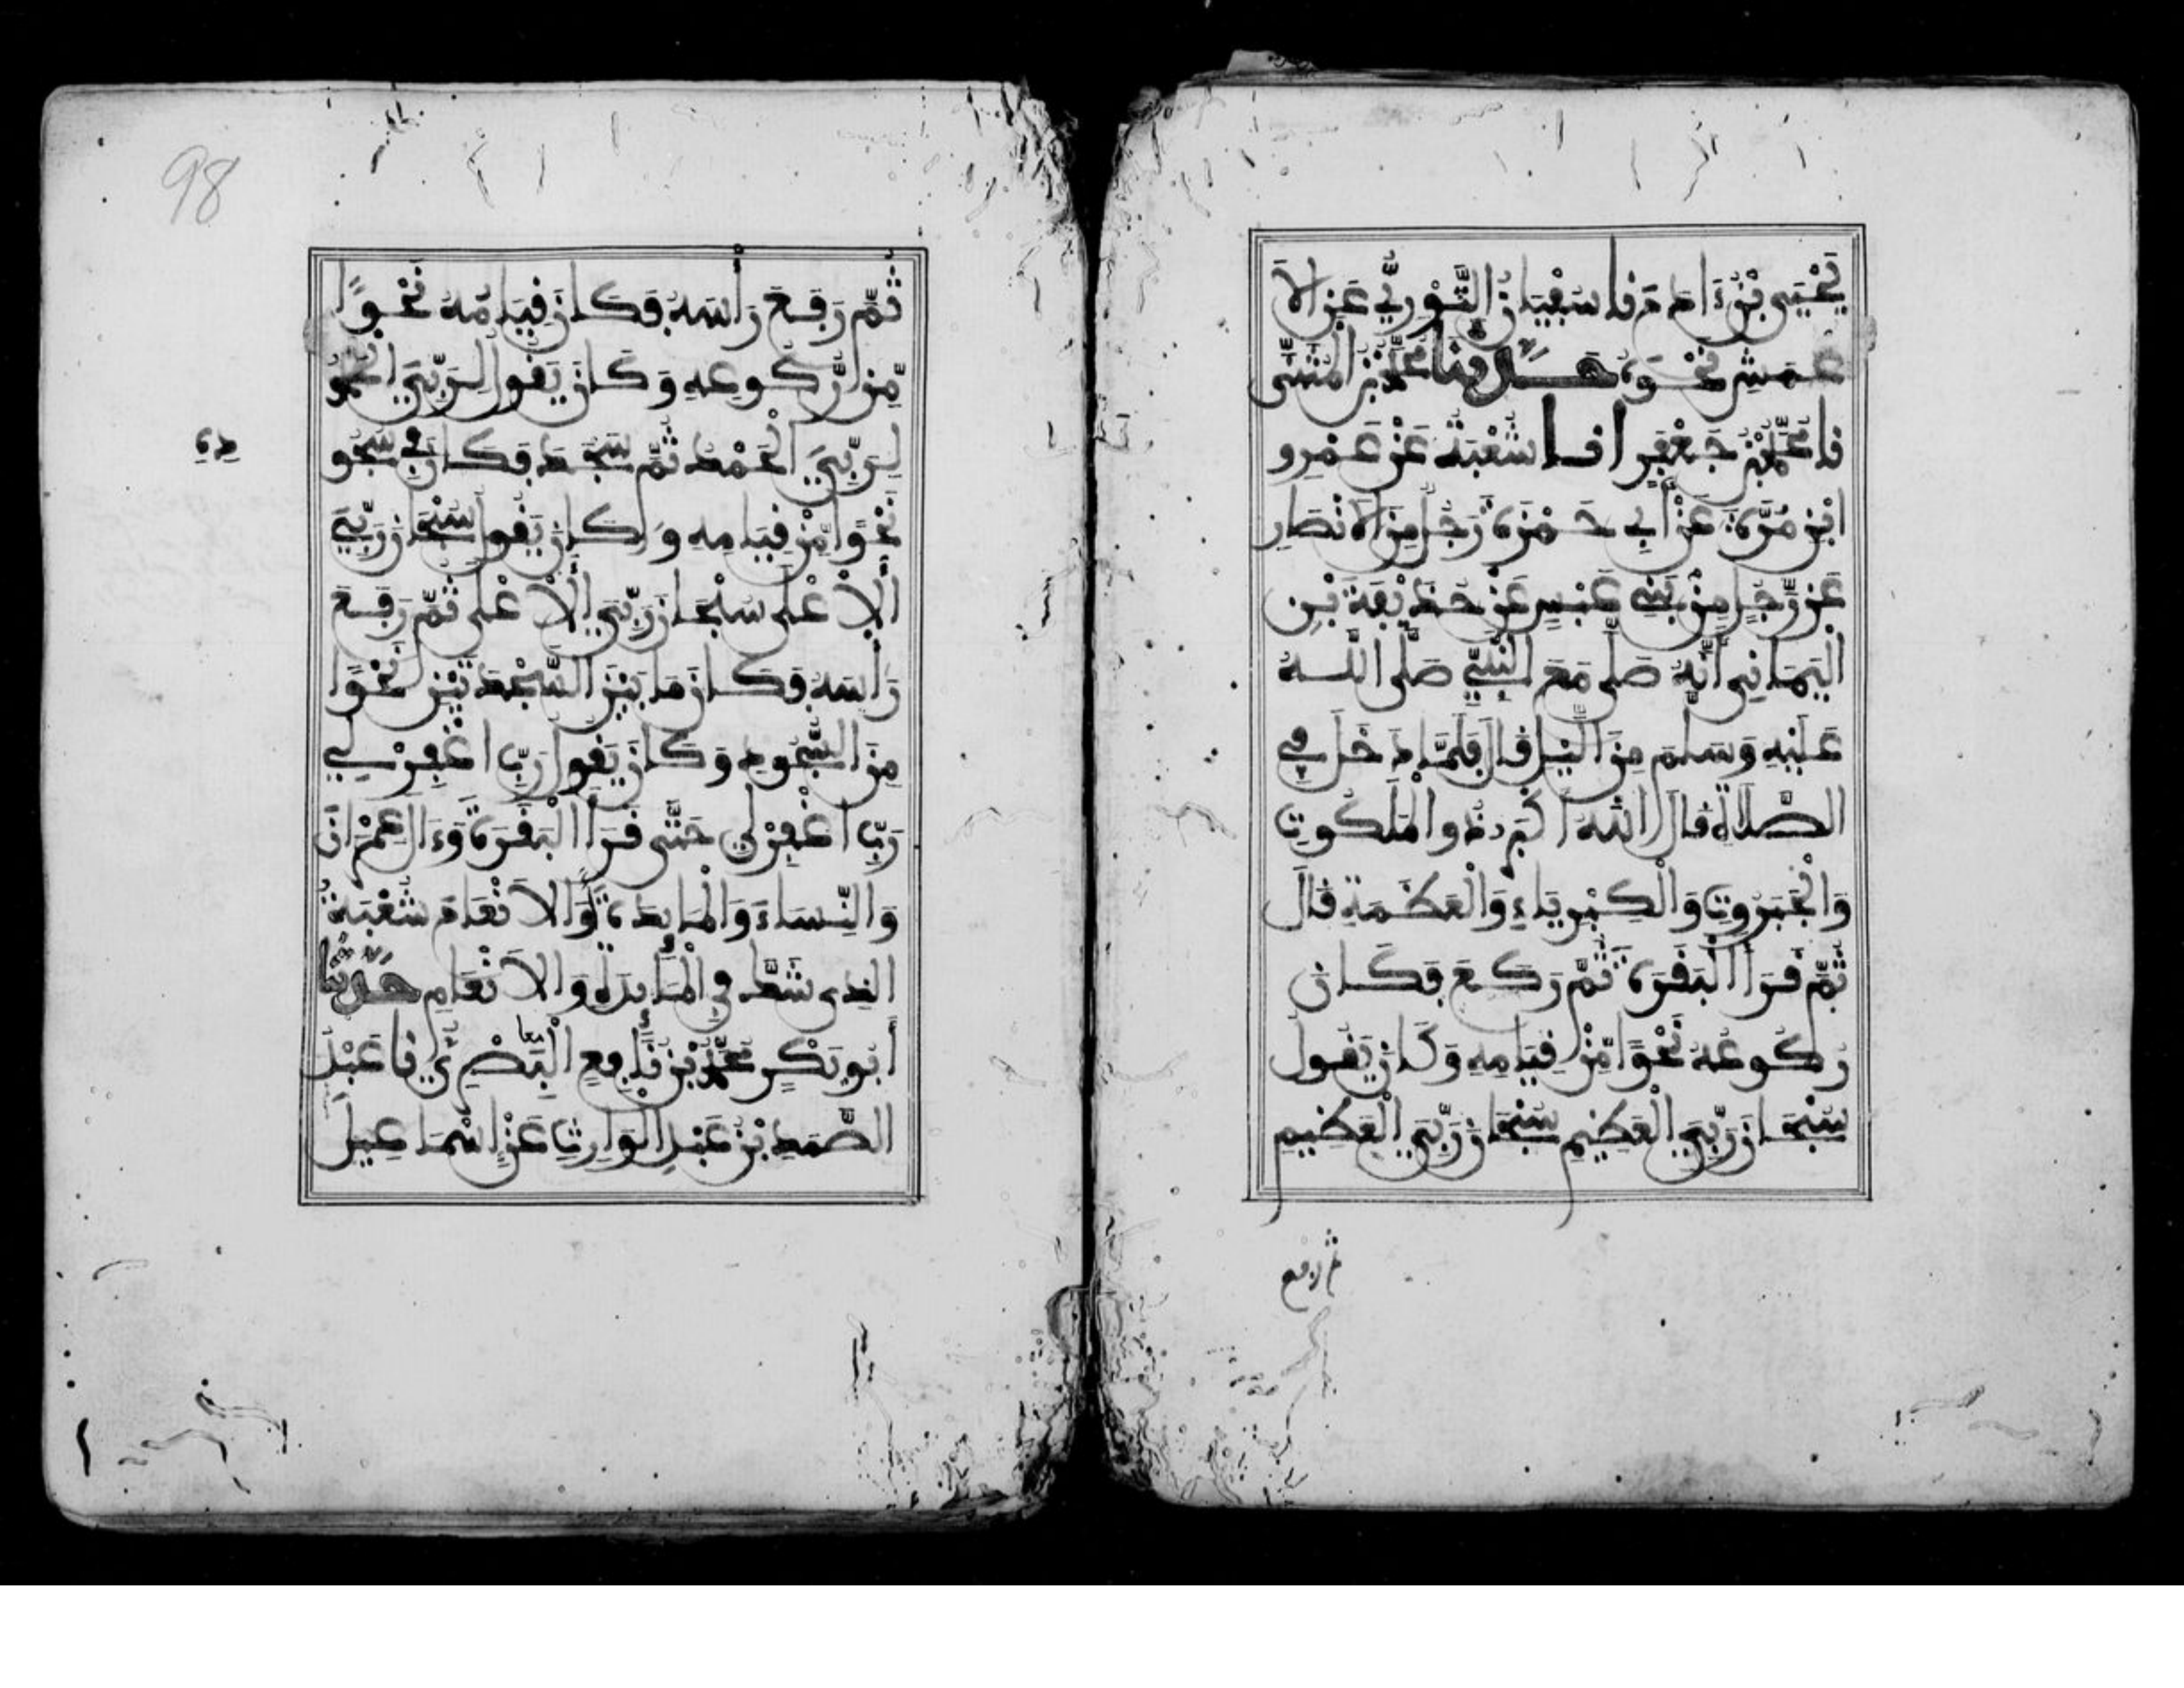 يَحْيَى بْنُ ءَادَمَ نا سُفْيَانُ الثَّوْرِيُّ عَنِ الاَ
عْمَشِ نَحْوَهُ حَدَّثَنَا مُحَمَّدُ بْنُ الْمُثَنَّى
نا مُحَمَّدُ بْنُ جَعْفَرٍ انا شُعْبَةُ عَنْ عَمْرِو
ابْنِ مُرَّةَ عَنْ أَبِي حَمْزَةَ رَجُلٍ مِنَ الاَنْصَارِ
عَنْ رَّجُلٍ مِنْ بَنِي عَبْسٍ عَنْ حُذَيْفَةَ بْنِ
الْيَمَانِي أَنَّهُ صَلَّى مَعَ النَّبِيِّ صَلَّى اللَّهُ
عَلَيْهِ وَسَلَّمَ مِنَ الَّيْلِ قَالَ فَلَمَّا دَخَلَ فِي
الصَّلاَةِ قَالَ اللَّهُ أَكْبَرُ ذُو الْمَلَكُوتِ
وَالْجَبَرُوتِ وَالْكِبْرِيَاءِ وَالْعَظَمَةِ قَالَ
ثُمَّ قَرَأَ الْبَقَرَةَ ثُمَّ رَكَعَ فَكَانَ
رُكُوعُهُ نَحْوًا مِّنْ قِيَامِهِ وَكَانَ يَقُولُ
سُبْحَانَ رَبِّيَ الْعَظِيمِ سُبْحَانَ رَبِّيَ الْعَظِيمِ
ثم رفع
98
ثُمَّ رَفَعَ رَأْسَهُ فَكَانَ قِيَامُهُ نَحْوًا
مِّن رُّكُوعِهِ وَكَانَ يَقُولُ لِرَبِّيَ الْحَمْدُ
لِرَبِّيَ الْحَمْدُ ثُمَّ سَجَدَ فَكَانَ فِي سُجُو
دِهِ
نَحْوًا مِّنْ قِيَامِهِ وَكَانَ يَقُولُ سُبْحَانَ رَبِّيَ
الاَعْلَى سُبْحَانَ رَبِّيَ الاَعْلَى ثُمَّ رَفَعَ
رَأْسَهُ فَكَانَ مَا بَيْنَ السَّجْدَتَيْنِ نَحْوًا
مِنَ السُّجُودِ وَكَانَ يَقُولُ رَبِّ اغْفِرْ لِي
رَبِّ اغْفِرْ لِي حَتَّى قَرَأَ الْبَقَرَةَ وَءَالَ عِمْرَانَ
وَالنِّسَاءَ وَالْمَائِدَةَ أَوِ الاَنْعَامَ شُعْبَةُ
الَّذِي شَكَّ فِي الْمَائِدَةِ وَالاَنْعَامِ حَدَّثَنَا
أَبُو بَكْرٍ مُحَمَّدُ بْنُ نَافِعٍ الْبَصْرِيُّ نا عَبْدُ
الصَّمَدِ بْنُ عَبْدِ الْوَارِثِ عَنْ إِسْمَاعِيلَ